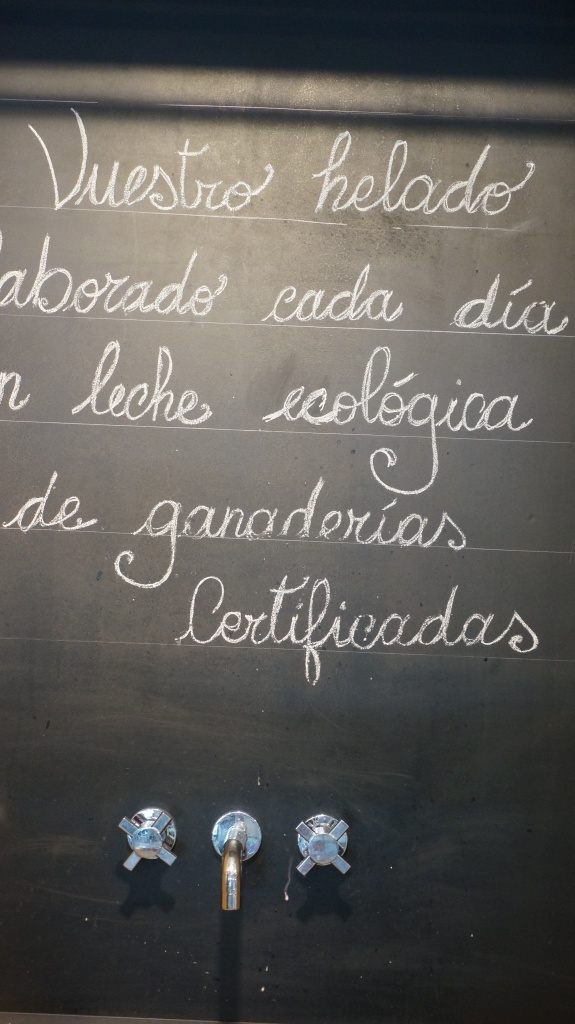 Vuestro helado
laborado cada día
n leche ecológica
de ganaderías
Certificadas